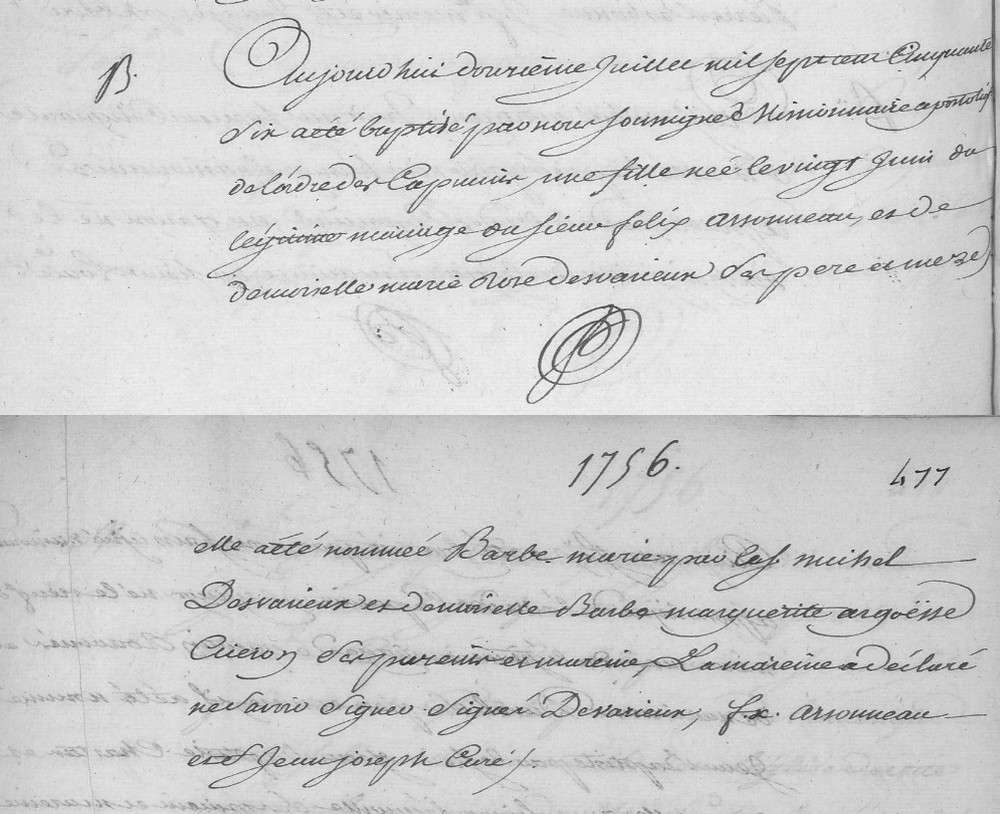 B.
Aujourd'hui douzième Juillet mil sept cent Cinquante
Six a été baptisé par nous soussigné Missionnaire apostoliq
de l'ordre des Capucins une fille née le vingt Juin du
légitime mariage du sieur felix arsonneau, et de
demoiselle marie Rose desvarieux Ses pere et mere)
1756.
477
elle a été nommée Barbe marie par les s. michel
Desvarieux et demoiselle Barbe marguerite argoësse
Cuëron Ses parein et mareine, La mareine a déclaré
ne Savoir Signer Signé Desvarieux, f.x. arsonneau
et f Jean joseph Curé).